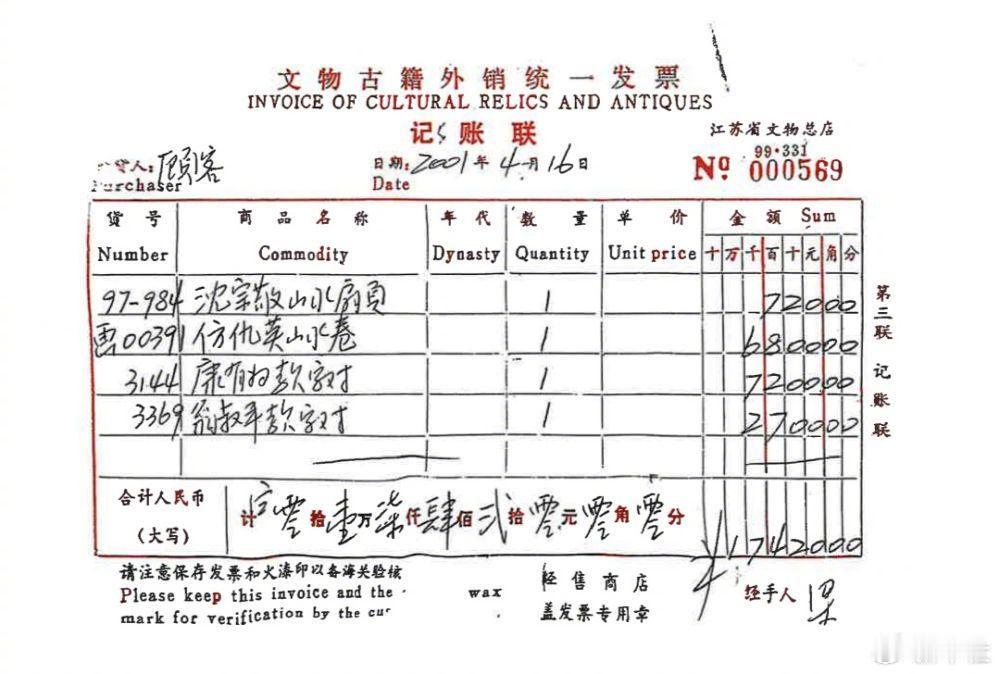 文物古籍外销统一发票
INVOICE OF CULTURAL RELICS AND ANTIQUES
记账联
江苏省文物总店
99·331
货人：顾客
日期：2001年4月16日
Nº 000569
Purchaser
Date
货号 商品名称 年代 数量 单价 金额 Sum
Number Commodity Dynasty Quantity Unit price 十万千百十元角分
97-984 沈宗敬山水扇页 1 72000
画00391 仿仇英山水卷 1 680000
3144 康有为款字对 1 720000
3369 翁叔平款字对 1 270000
第三联 记账联
合计人民币
（大写）
计 零拾壹万柒仟肆佰贰拾零元零角零分
¥1742000
请注意保存发票和火漆印以备海关验核
Please keep this invoice and the wax
mark for verification by the
经售商店
盖发票专用章
经手人 梁